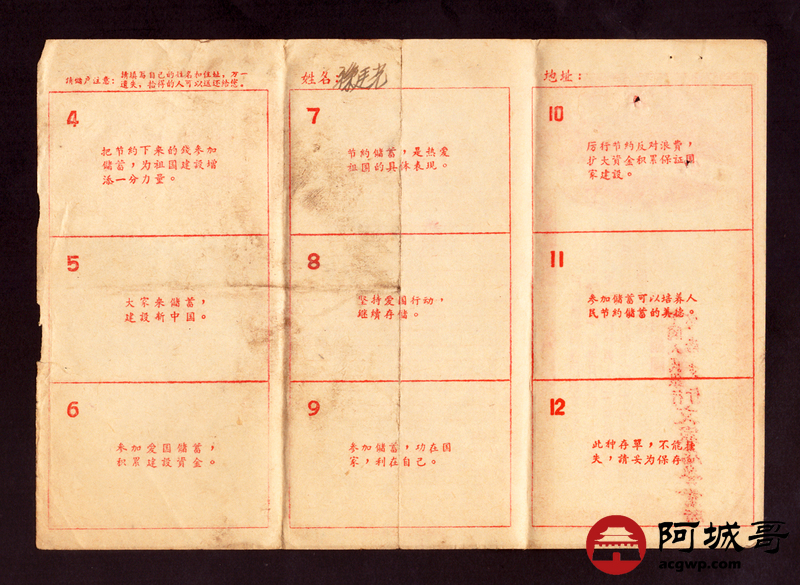 請储户注意：請填写自己的姓名和住址，万一
遗失，拾得的人可以送还給您。
姓名：
地址：
4
把节約下来的錢参加
儲蓄，为祖国建設增
添一分力量。
5
大家来儲蓄，
建設新中国。
6
参加爱国儲蓄，
积累建設資金。
7
节約儲蓄，是热爱
祖国的具体表现。
8
坚持爱国行动，
继續存儲。
9
参加儲蓄，功在国
家，利在自己。
10
厉行节約反对浪費，
扩大资金积累保证国
家建設。
11
参加儲蓄可以培养人
民节約儲蓄的美德。
12
此种存单，不能挂
失，請妥为保存
阿城哥
acgwp.com